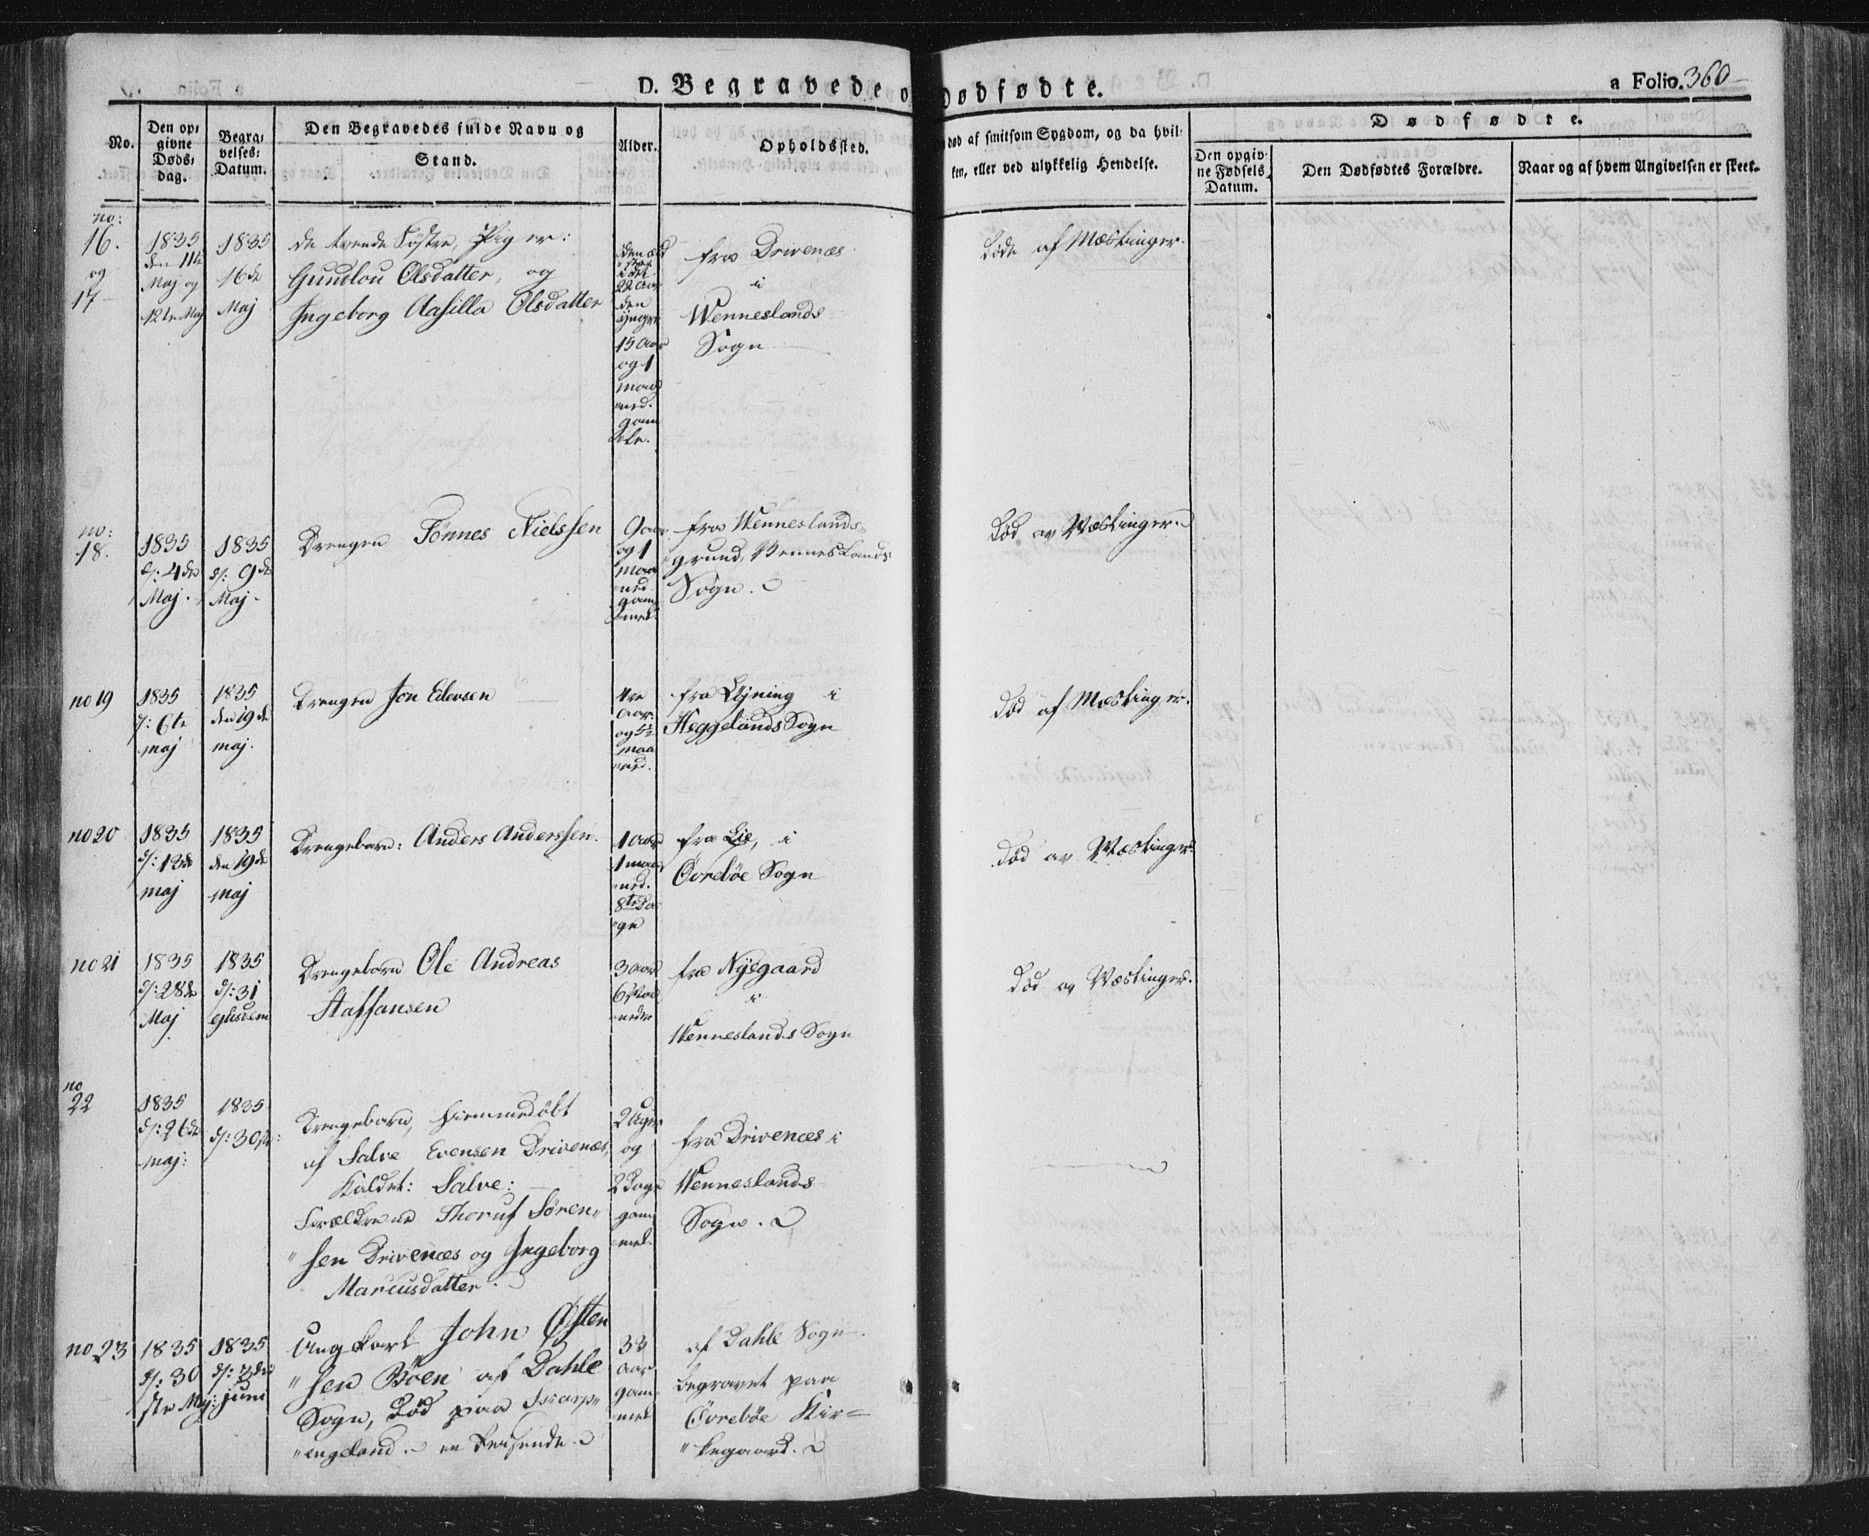 D. Begravede o
Dødfødte.
a Folio. 360
No.
Den op-
givne
Døds-
dag.
Begra-
velses-
Datum.
Den Begravedes fulde Navn og
Stand.
Alder.
Opholdssted.
død af smitsom Sygdom, og da hvil-
ken, eller ved ulykkelig Hendelse.
Dødfødte.
Den opgiv-
ne Fødsels
Datum.
Den Dødfødtes Forældre.
Naar og af hvem Angivelsen er skeet.
no:
16.
og
17
1835
den 11te
Maj og
12te Maj
1835
16de
Maj
de tvende Søstre, Piger:
Gunlou Olsdatter, og
Ingeborg Aasilla Olsdatter
22 Aar
den
yngre
15 Aar
og 1
maa
ned.
gam
fra Drivenæs
i
Wenneslands
Sogn
døde af Mæslinger.
no:
18.
1835
d: 4de
Maj.
1835
d: 9de
Maj.
Drengen Tønnes Nielssen
9 aar
og 1
maa
ned
gam
mel
fra Wenneslands
grund, Wenneslands
Sogn.
død av Mæslinger.
no 19
1835
d: 6te
maj
1835
den 19de
maj.
Drengen Jon Edevsen
aar
og
maa
ned.
fra
i
Heggelands Sogn
død af Mæslinger.
no 20
1835
d: 13de
maj
1835
den 19de
maj
Drengebarn: Anders Anderssen.
1 aar
1 maa
ned.
8te Da
ge
fra Lie, i
Øvrebøe Sogn
død av Mæslinger
no 21
1835
d: 28de
Maj
1835
d: 31
ejusdem
Drengebarn Ole Andreas
Staffansen
3 aar
6 Maa
neder
fra Nyegaard
i
Wenneslands Sogn
død av Mæslinger.
no
22
1835
d: 26de
maj:
1835
d: 30te
Drengebarn, hiemmedøbt
af Salve Evensen Drivenæs,
Kaldet: Salve:
Forældrene Thoruf Søren
sen Drivenæs og Ingeborg
Marcusdatter.
2 Uger
og
2 Dage
gam
mel.
fra Drivenæs i
Wenneslands
Sogn.
no 23
1835
d: 30
te Maj
1835
d: 3de
juni
Ungkarl John Østen
sen Bøen af Dahle
Sogn, død paa Skarp
engeland. en Reisende.
33
aar
gam
mel
af Dahle Sogn.
begravet paa
Øvrebøe Kir=
kegaard.